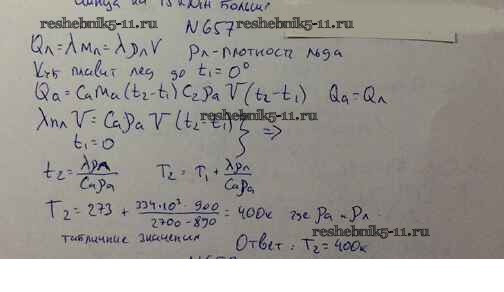 на
больше
reshebnik5-11.ru
reshebnik5-11.ru
N657
Qл = λмл = λρлV ρл-плотность льда
Куб плавит лед до t₁=0°
Qа = Cамa(t₂-t₁) C₂ρаV(t₂-t₁) Qа = Qл
λплV = CаρаV(t₂-t₁) } ⇒ reshebnik5-11.ru
t₁=0
t₂ = λρл/Cаρа T₂ = T₁ + λρл/Cаρа
T₂ = 273 + 334·10³·900/2700-890 = 400к где ρа и ρл -
табличные значения reshebnik5-11.ru
Ответ: T₂ = 400к